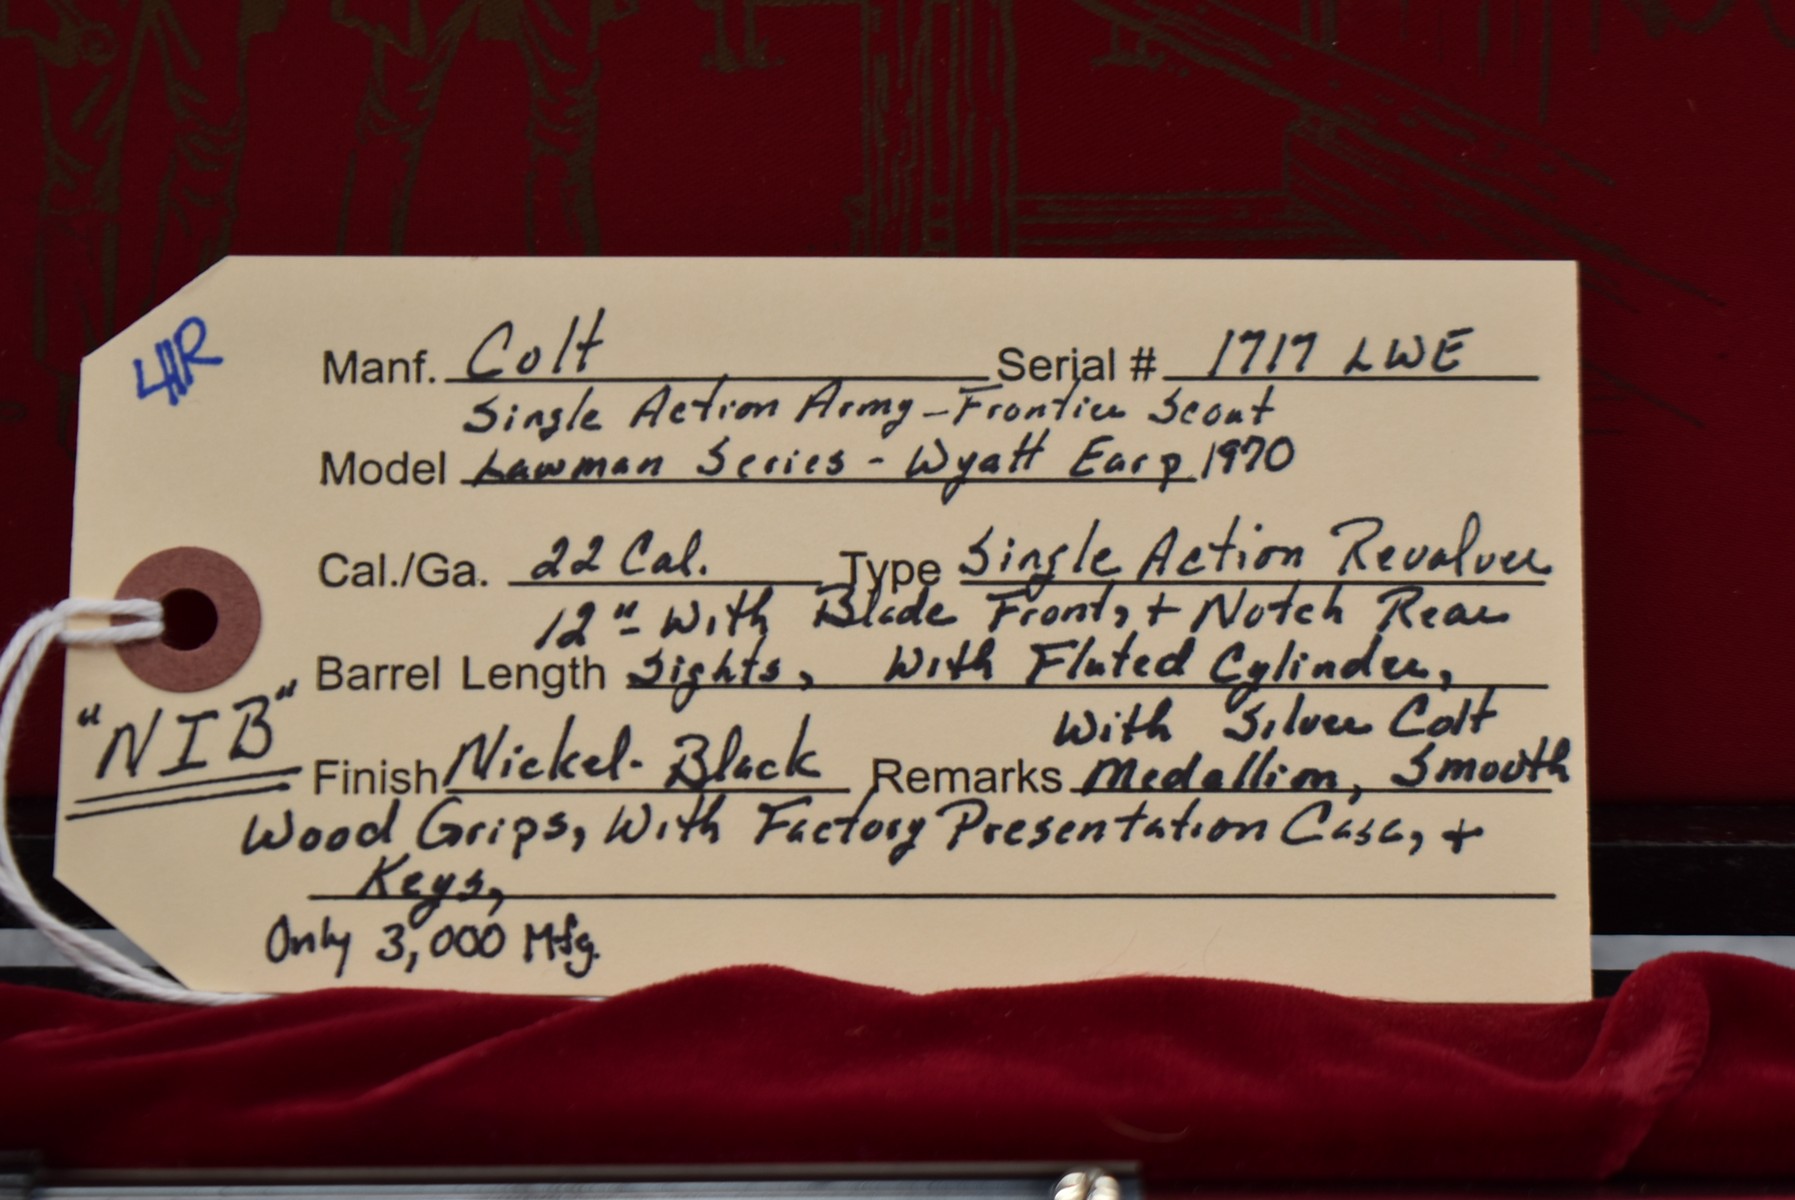 41R
Manf. Colt Serial # 1717 LWE
Single Action Army - Frontier Scout
Model Lawman Series - Wyatt Earp 1970
Cal./Ga. 22 Cal. Type Single Action Revalver
12" With Blade Front, + Notch Rear
Barrel Length Sights, With Fluted Cylinder,
"NIB"
With Silver Colt
Finish Nickel- Black Remarks Medallion, Smooth
Wood Grips, With Factory Presentation Case, +
Keys,
Only 3,000 Mfg.